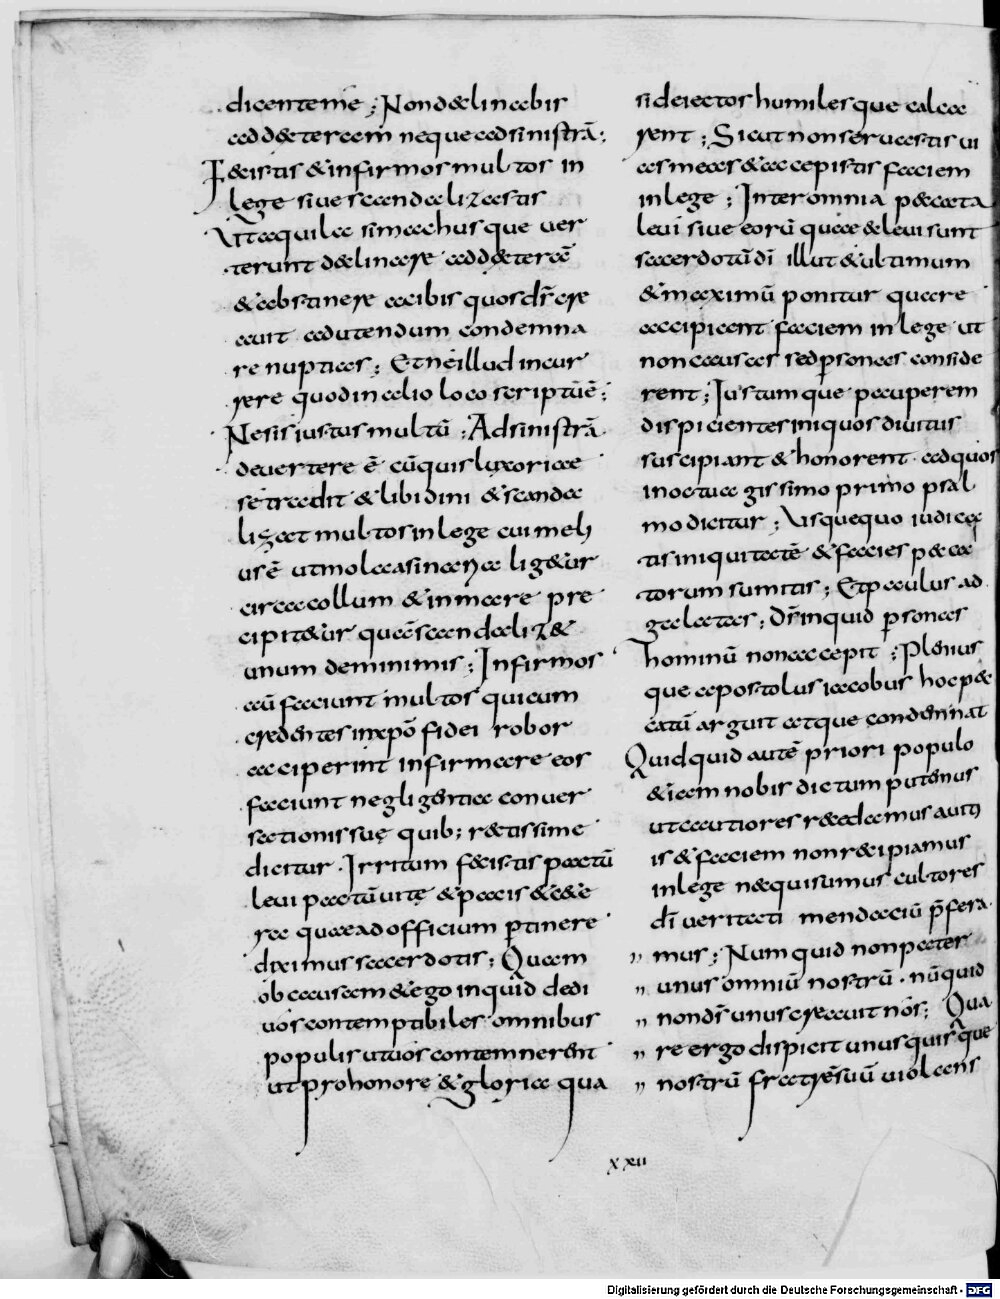 dicentem e; Non declinabis
ad dexteram neque ad sinistrā;
Fecistis & infirmos multos in
lege siue scandalizastis
Ut aquila simachusque uer
terunt declinare ad dexterā
& abstinere a cibis quos dr̄ cre
auit ad utendum condemna
re nuptias; Et ne illud incur
rere quod in alio loco scriptū ē;
Ne sis iustus multū; Ad sinistrā
deuertere ē cū quis luxoriae
se tradit & libidini & scanda
lizat multos in lege cui meli
us ē ut mola asinaria ligetur
circa collum & in mare pre
cipitetur quā scandaliz&
unum de minimis; Infirmos
aū faciunt multos qui cum
credentes in xpō fidei robor
acciperint infirmare eos
faciunt negligentia conuer
sationis suę quib; rectissime
dicitur. Irritum fecistis pactū
leui pactū uitę & pacis & c&e
ra quae ad officium ptinere
diximus sacerdotis; Quam
ob causam & ego inquid dedi
uos contemptibiles omnibus
populis ut uos contemnerent
ut pro honore & gloria qua
si deiectos humilesque calca
rent; Sicut non seruastis ui
as meas & accepistis faciem
in lege; Inter omnia peccata
leui siue eorū quae & leui sunt
sacerdotū dī illut & ultimum
& maximū ponitur quare
accipicant faciem in lege ut
non causas sed psonas conside
rent; Iustumque pauperem
dispicientes iniquos diuitus
suscipiant & honorent. ad quos
in octuagissimo primo psal
mo dicitur; Usquequo iudica
tis iniquitatē & facies pecca
torum sumitis; Et paulus ad
galatas; Dr̄ inquid psonas
hominū non accepit; Plenius
que apostolus iacobus hoc pec
catū arguit atque condemnat
Quidquid autē priori populo
& iam nobis dictum putemus
ut cautiores reddamus aut
is & faciem non recipiamus
in lege nequisimus cultores
dī ueritati mendaciū p̄fera
mus; Numquid non pater
unus omniū nostrū. nūquid
non ds̄ unus creauit nos; Qua
re ergo dispicit unusquisque
nostrū fratrē suū uiolans
xxii
Digitalisierung gefördert durch die Deutsche Forschungsgemeinschaft - DFG